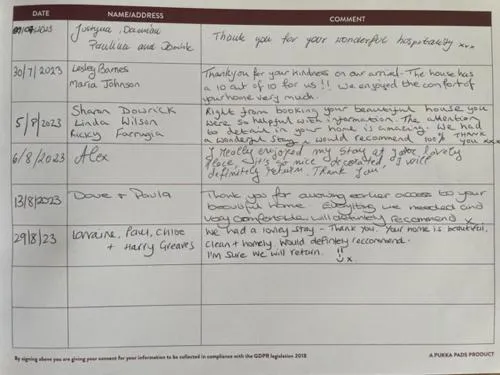 DATE NAME/ADDRESS COMMENT
Justyna, Damian
Paulina and Dominik
Thank you for your wonderful hospitality xxx
30/7/2023 Lesley Barnes
Maria Johnson
Thankyou for your kindness on our arrival - The house has
a 10 out of 10 for us!! we enjoyed the comfort of
your home very much.
5/8/2023 Sharon Dowrick
Linda Wilson
Ricky Farrugia
Right from booking your beautiful house you
were so helpful with information. The attention
to detail in your home is amazing. We had
a wonderful stay & would recommend 100% THANK
YOU xxx
6/8/2023 Alex
I really enjoyed my stay at your lovely
place. It's so nice decorated, I will
definitely return. Thank you,
13/8/2023 Dave + Paula
Thank you for allowing earlier access to your
beautiful home. Everything we needed and
very comfortable. will definitely recommend x
29/8/23 Lorraine, Paul, Chloe
+ Harry Greaves
We had a lovely stay - Thank you. Your home is beautiful,
clean + homely. Would definitey reccommend.
I'm sure we will return. !! x
By signing above you are giving your consent for your information to be collected in compliance with the GDPR legislation 2018
A PUKKA PADS PRODUCT